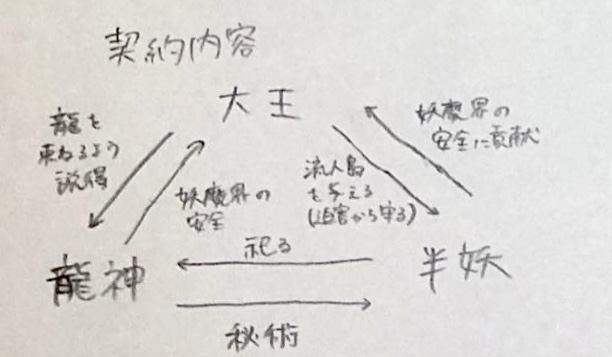 契約内容
大王
龍を
束ねるよう
説得
妖魔界の
安全
流人島
を与える
(迫害から守る)
妖魔界の
安全に貢献
龍神
祀る
秘術
半妖